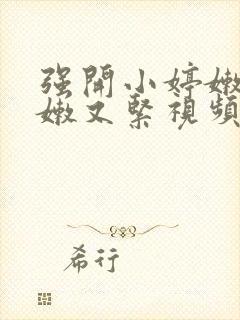 强開小婷嫩
嫩又緊視頻
希行